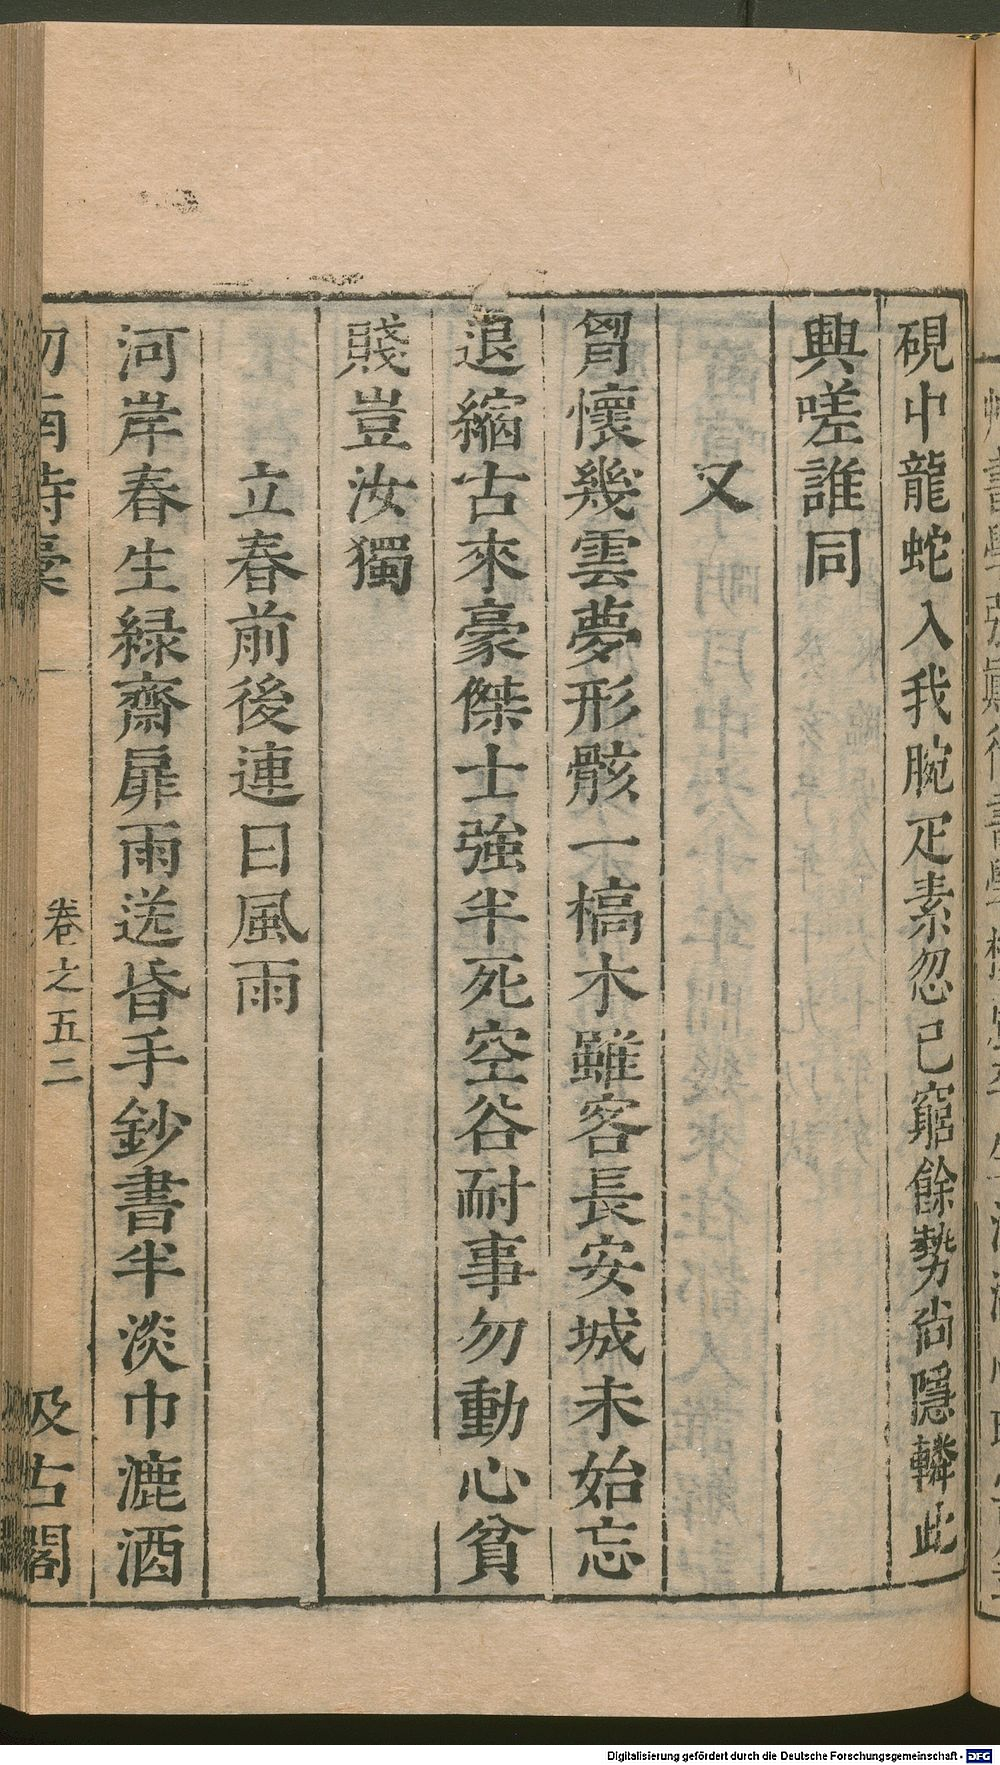 硯中龍蛇入我腕疋素忽已窮餘勢尚隱轔此
興嗟誰同
又
胷懷幾雲夢形骸一槁木雖客長安城未始忘
退縮古來豪傑士強半死空谷耐事勿動心貧
賤豈汝獨
立春前後連日風雨
河岸春生緑齋扉雨送昏手鈔書半淡巾漉酒
南詩稾
卷之五
二
汲古閣
Digitalisierung gefördert durch die Deutsche Forschungsgemeinschaft - DFG